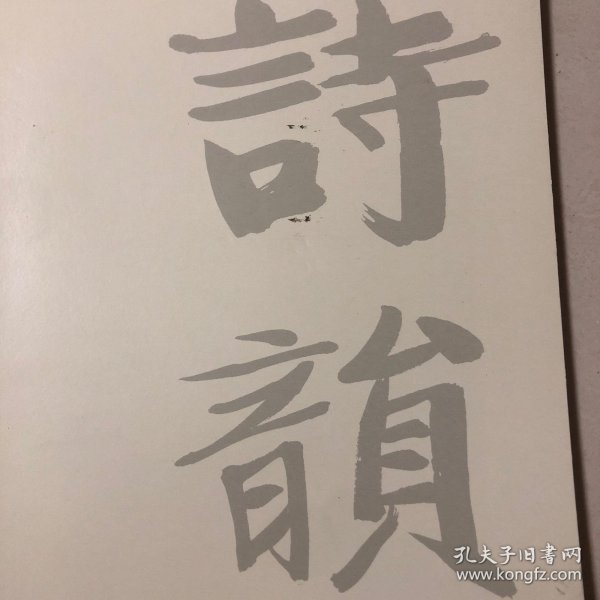 詩
韻
孔夫子旧書网
www.kongfz.com